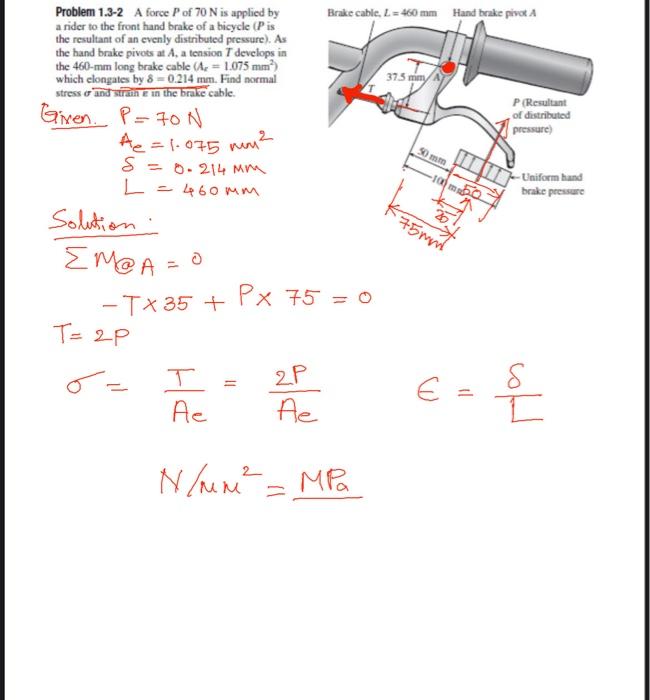 Problem 1.3-2 A force P of 70 N is applied by
a rider to the front hand brake of a bicycle (P is
the resultant of an evenly distributed pressure). As
the hand brake pivots at A, a tension T develops in
the 460-mm long brake cable (Ae = 1.075 mm²)
which elongates by δ = 0.214 mm. Find normal
stress σ and strain ε in the brake cable.
Brake cable, L = 460 mm Hand brake pivot A
37.5 mm A
T
P (Resultant
of distributed
pressure)
50 mm
100 mm
Uniform hand
brake pressure
50
25
75mm
Given. P = 70 N
Ae = 1.075 mm²
δ = 0.214 mm
L = 460 mm
Solution :
Σ M@A = 0
- T x 35 + P x 75 = 0
T = 2P
σ = T/Ae = 2P/Ae ε = δ/L
N/mm² = MPa